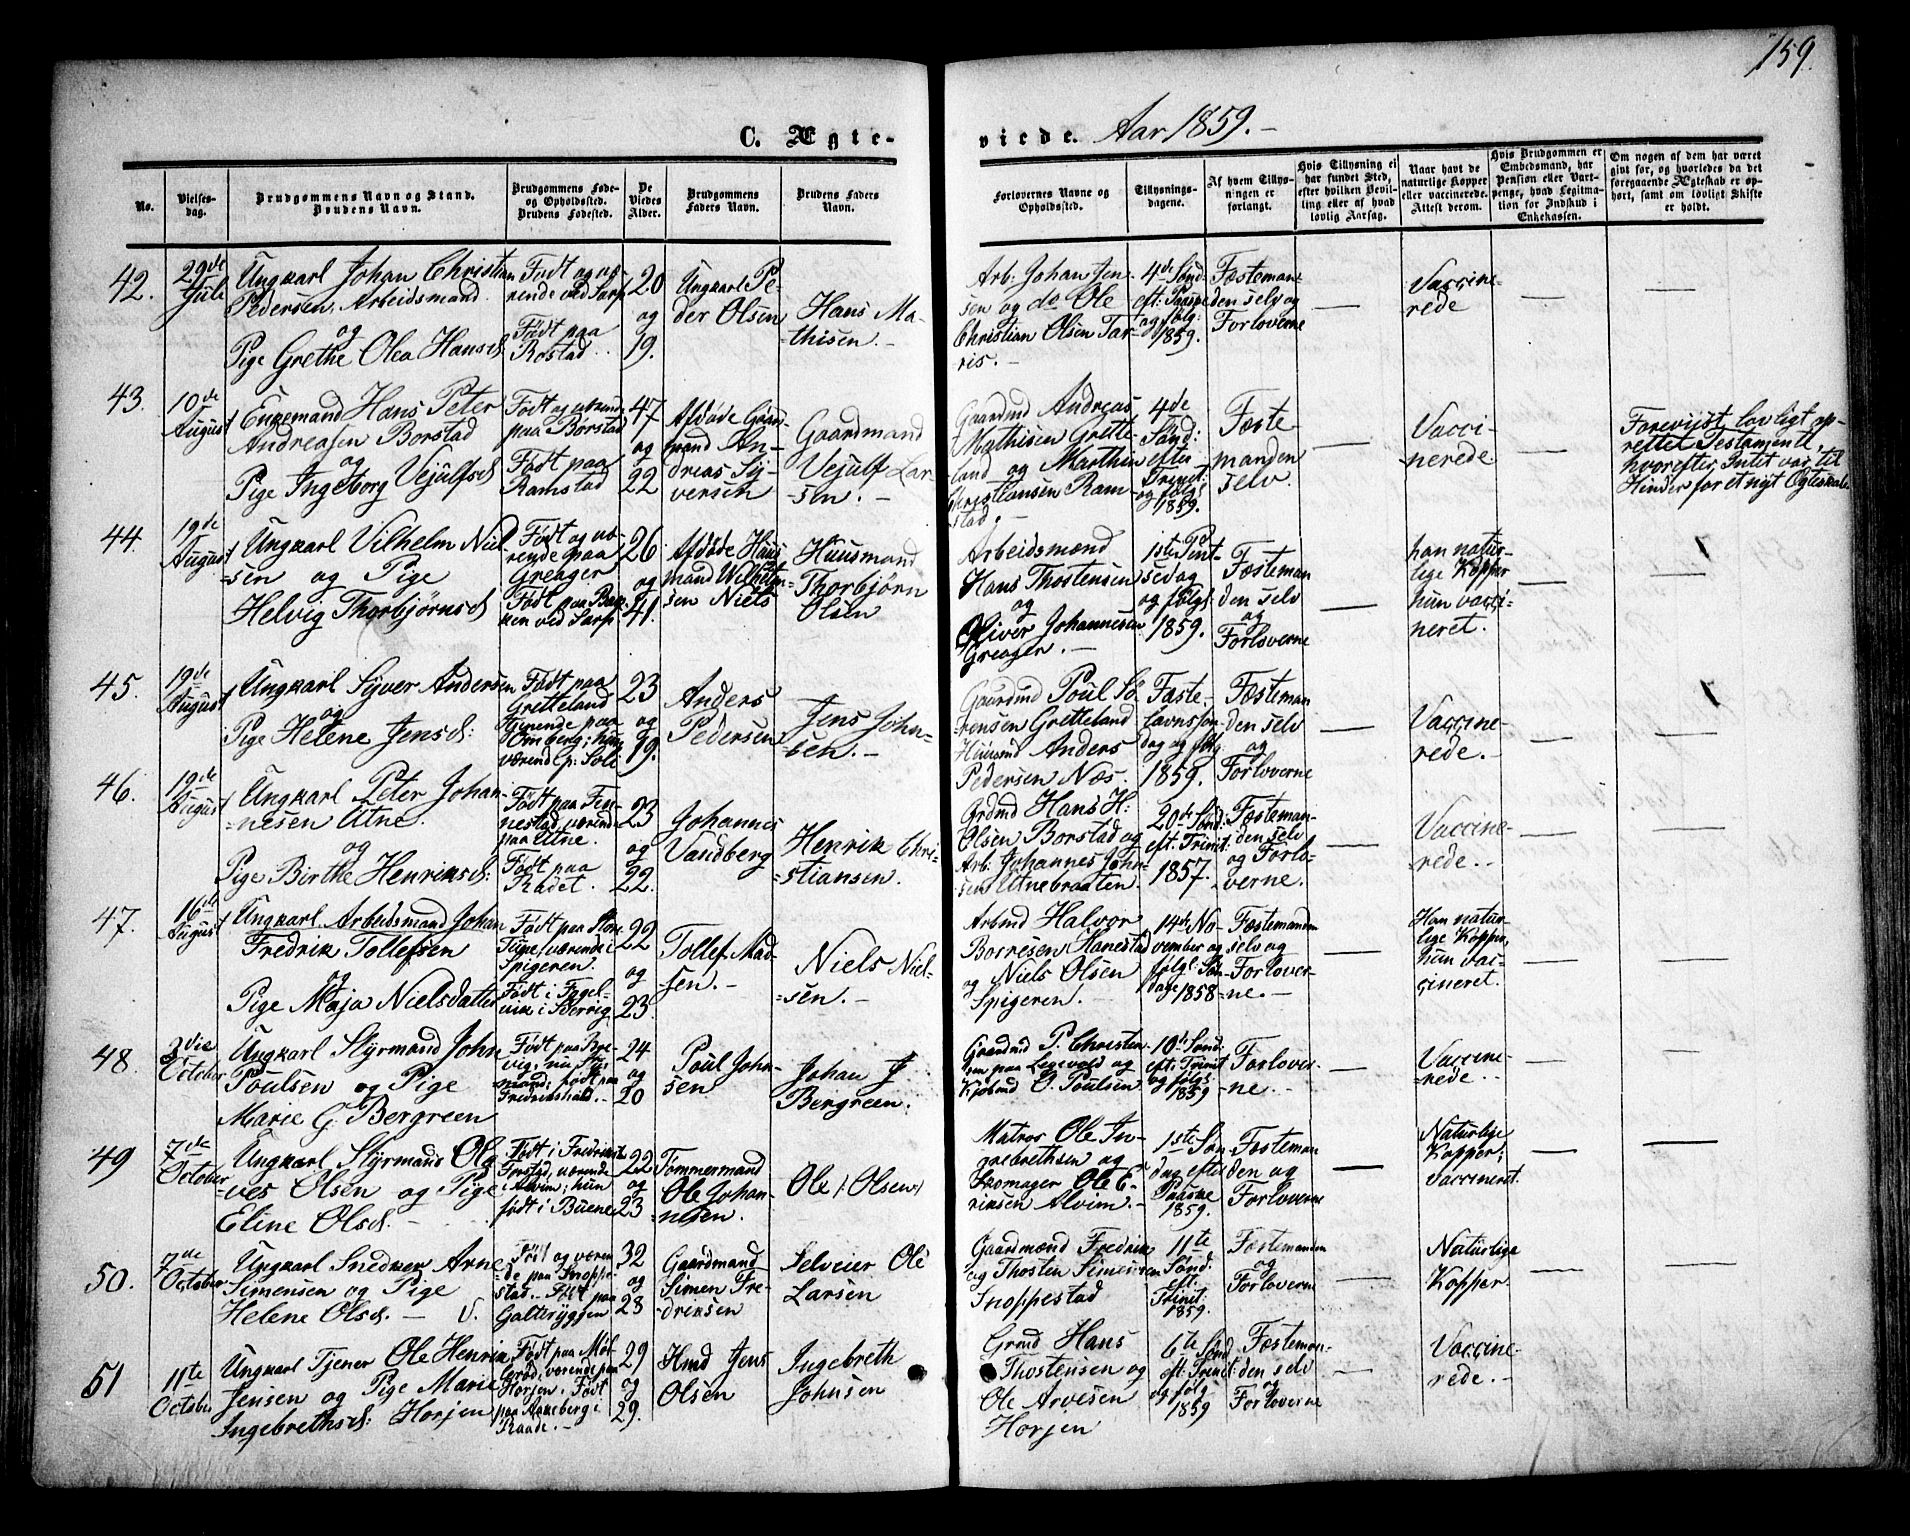 159.
C. Ægte-
viede. Aar 1859.-
No.
Vielses-
dag.
Brudgommens Navn og Stand.
Brudens Navn.
Brudgommens Føde-
og Opholdssted.
Brudens Fødested.
De
Viedes
Alder.
Brudgommens
Faders Navn.
Brudens Faders
Navn.
Forlovernes Navne og
Opholdssted.
Tillysnings-
dagene.
Af hvem Tillys-
ningen er
forlangt.
Hvis Tillysning ei
har fundet Sted,
efter hvilken Bevil-
ling eller af hvad
lovlig Aarsag.
Naar havt de
naturlige Kopper
eller vaccinerede.
Attest derom.
Hvis Brudgommen er
Embedsmand, har
Pension eller Vart-
penge, hvad Legitima-
tion for Indskud i
Enkekassen.
Om nogen af dem har været
givt før, og hvorledes da det
foregaaende Ægteskab er op-
hørt, samt om lovligt Skifte
er holdt.
42.
29de
Juli
Ungkarl Johan Christian
Pedersen, Arbeidsmand.
og
Pige Grethe Olea Hansd.
Født og væ-
rende ved Sarp
Født paa
Bostad.
20
og
19.
Ungkarl Pe-
der Olsen
Hans Ma-
thisen.-
Arb. Johan Jen-
sen og do Ole
Christian Olsen Tar-
ris.-
4de Sønd
eft: Paaske
og følg:
1859.
Fæsteman-
den selv og
Forloverne
Vaccine-
rede
43.
10de
August
Enkemand Hans Peter
Andreasen Borstad
og
Pige Ingeborg Vejulfsd
Født og værend
paa Borstad
Født paa
Ramstad
47
og
22
Afdøde Gaard-
mand An-
dreas Sy-
versen
Gaardmand
Vejulf Lar-
sen.-
Gaardmd Andreas
Mathisen Grette-
land og Marthin
Christiansen Ram-
stad.-
4de
Sønd:
efter
Trinit:
og følg:
1859.
Fæste
manden
selv.
Vacci-
nerede
Foreviist lovligt op-
rettet Testament,
hvorefter Intet var til
Hinder for et nyt Ægteskab.
44.
19de
August
Ungkarl Vilhelm Niel-
sen og Pige
Helvig Thorbjørnsd
Født og væ-
rende paa
Greager
Født paa Bak-
ken ved Sarp
26
og
41.
Afdøde Huus-
mand Wilhelm-
sen Niels
Huusmand
Thorbjørn
Olsen
Arbeidsmænd
Hans Thostensen
og
Oliver Johannesen
Greager.-
1ste Pd
Pint-
sedag
og følg:
1859.
Fæsteman
den selv
og
Forloverne
han natur-
lige Kopper
hun vacci-
neret.
45.
19de
August
Ungkarl Syver Andersen
og
Pige Helene Jensd:
Født paa
Gretteland
tjenende paa
Omberg; hun
værend p: Soli
23
og
19.
Anders
Pedersen
Jens John-
sen.-
Gaardmd Poul Sø-
rensen Gretteland
Huusmd Anders
Pedersen Næs.
Faste-
lavnssøn-
dag og følg
1859.
Fæsteman-
den selv
og
Forloverne
Vaccine-
rede.-
46.
19de
August
Ungkarl Peter Johan-
nesen Utne.
og
Pige Birthe Henriksd:
nestad, værende
paa Utne.
Født paa
Radet.
23
og
22.
Johannes
Vandberg
Henrik Chri-
stiansen.
Grdmd Hans H:
Olsen Borstad og
Arb. Johannes John-
sen Utnebraaten.
20de Sønd:
eft. Trinit:
1857.
Fæsteman-
den selv
og Forlo-
verne.
Vaccine-
rede.-
47.
16de
August
Ungkarl Arbeidsmand Johan
Fredrik Tollefsen
og
Pige Maja Nielsdatter
Født paa Store
Tune, værende i
Spigeren.
Født i Fugel-
vik i Berrig
22
og
23
Tollef Mad-
sen.-
Niels Niel-
sen.-
Arbmd Halvor
Borresen Hanestad
og Niels Olsen
Spigeren.-
14de No-
vember og
følgl: Søn-
dage 1858
Fæstemanden
selv og
Forlover-
ne.-
Han natur-
lige Kopper,
hun vac-
cineret.
48.
3die
October
Ungkarl Styrmand John
Poulsen og Pige
Marie G. Bergreen
24
og
20
Poul John-
sen
Johan J
Bergreen.
Gaardmd P. Chresten-
sen paa Legevold og
Kjøbmd O. Poulsen
10de Sønd:
eft. Trinit
og følg:
1859
Forlover-
ne.-
Vaccine-
rede.-
49
7de
October
Ungkarl Styrmand Ola-
ves Olsen og Pige
Eline Olsd.-
Født i Fredrik-
stad, værende
i Alvim; hun
født i Buene
22
og
23
Tømmermand
Ole Johan-
nesen.
Ole (Olsen)
Matros Ole In-
gebrethsen og
Skomager Ole E-
riksen Alvim.-
1ste Søn-
dag efter
Paaske
1859.
Fæsteman
den og
Forloverne
Naturlige
Kopper;
vaccineret.
50.
7de
October
Ungkarl Snedker Arne
Simensen og Pige
Helene Olsd.-
Født og væren
de paa Snoppe-
stad.- Født paa
Galteryggen
32
og
28
Gaardmand
Simen Fre-
driksen
Selveier Ole
Larsen
Gaardmænd Fredrik
og Thosten Simensen
Snoppestad
11te
Sønd:
eft.
Trinit:
1859.
Fæstemanden
og
Forloverne
Naturlige
Kopper
51
11te
October
Ungkarl Tjener Ole Henrik
Jensen og Pige Marie
Ingebrethsd: Horjen
Født paa Møl-
lerød, værende paa
Horjen; Født
paa Aakeberg i
Raade.-
29
og
29.
Hmd Jens
Olsen
Ingebreth
Johnsen
Grdmd Hans
Thostensen og
Ole Arvesen
Horjen
6te Sønd
eft: Trinit:
og følg:
1859
Fæsteman-
den selv
og
Forloverne
Vaccine-
rede.-